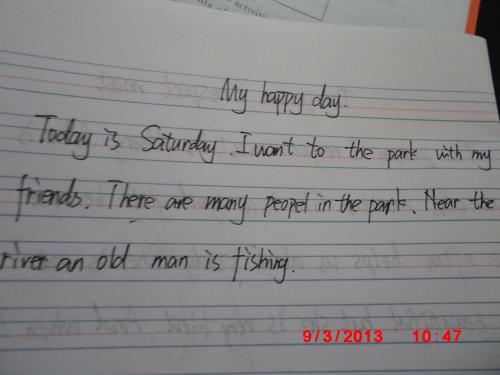 My happy day.
Today is Saturday. I want to the park with my
friends. There are many peopel in the park. Near the
river an old man is fishing.
9/3/2013 10:47